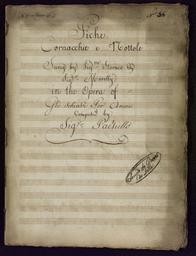 No. 36
Fiche
Cornacchie e Nottole
Sung by Sigra. Storace &
Sigr. Morelli
in the Opera of
Gli Schiavi Per Amore
Composed by
Sigr. Paisiello